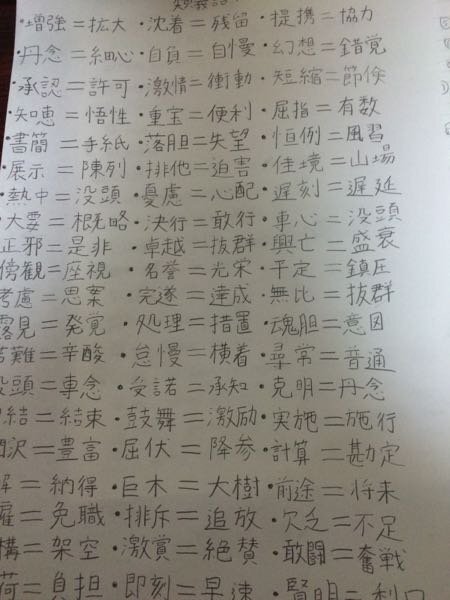 類義語
・増強=拡大 ・沈着=残留 ・提携=協力
・丹念=細心 ・自負=自慢 ・幻想=錯覚
・承認=許可 ・激情=衝動 ・短縮=節倹
・知恵=悟性 ・重宝=便利 ・屈指=有数
・書簡=手紙 ・落胆=失望 ・恒例=風習
・展示=陳列 ・排他=迫害 ・佳境=山場
熱中=没頭 ・憂慮=心配 ・遅刻=遅延
大要=概略 ・決行=敢行 ・専心=没頭
正邪=是非 ・卓越=抜群 ・興亡=盛衰
傍観=座視 ・名誉=光栄 ・平定=鎮圧
考慮=思案 ・完遂=達成 ・無比=抜群
露見=発覚 ・処理=措置 ・魂胆=意図
苦難=辛酸 ・怠慢=横着 ・尋常=普通
没頭=専念 ・受諾=承知 ・克明=丹念
結=結束 ・鼓舞=激励 ・実施=施行
沢=豊富 ・屈伏=降参 ・計算=勘定
解=納得 ・巨木=大樹 ・前途=将来
雇=免職 ・排斥=追放 ・欠乏=不足
構=架空 ・激賞=絶賛 ・敢闘=奮戦
荷=負担 ・即刻=早速 ・賢明=利口